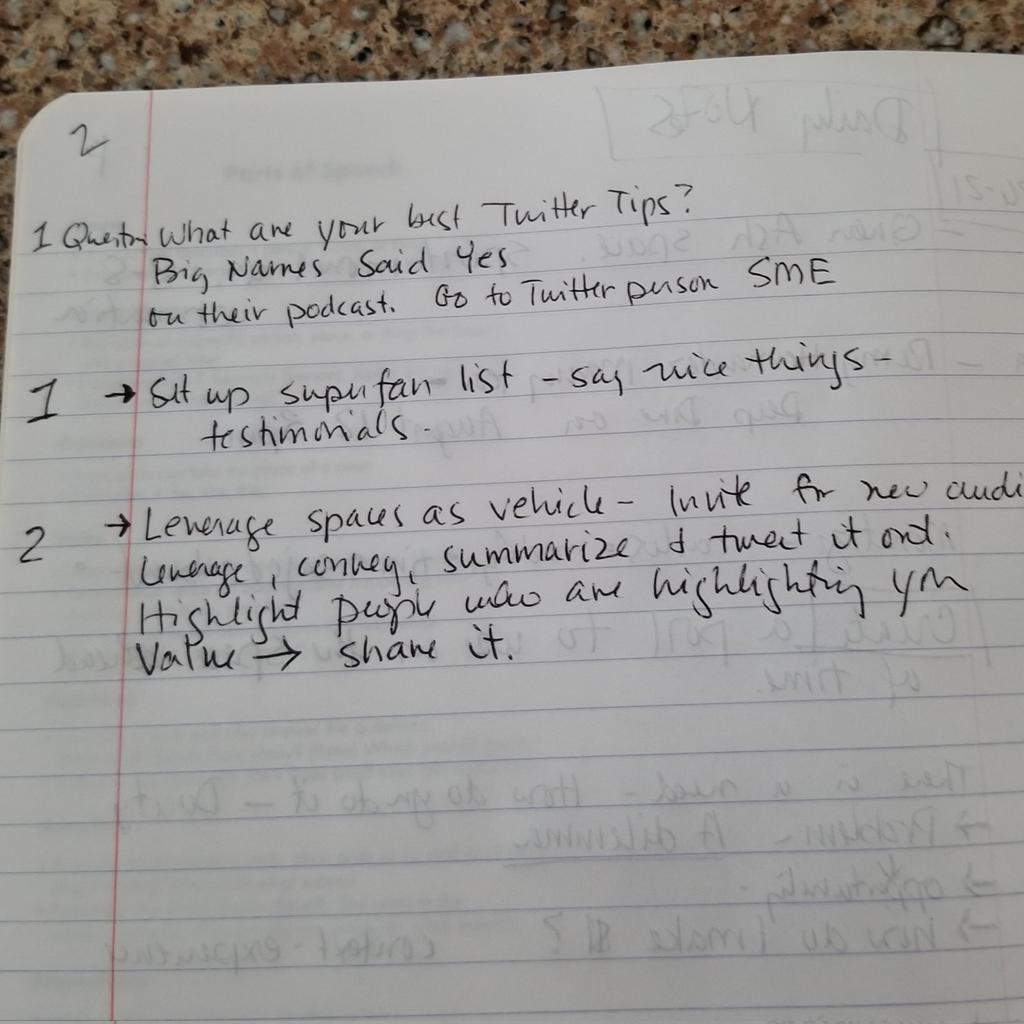 2
1 Question What are your best Twitter Tips?
Big Names Said Yes
on their podcast. Go to Twitter person SME
1 → Set up superfan list - say nice things -
testimonials.
2 → Leverage spaces as vehicle - Invite for new audi
Leverage, convey, summarize & tweet it out.
Highlight people who are highlighting your
Value → share it.